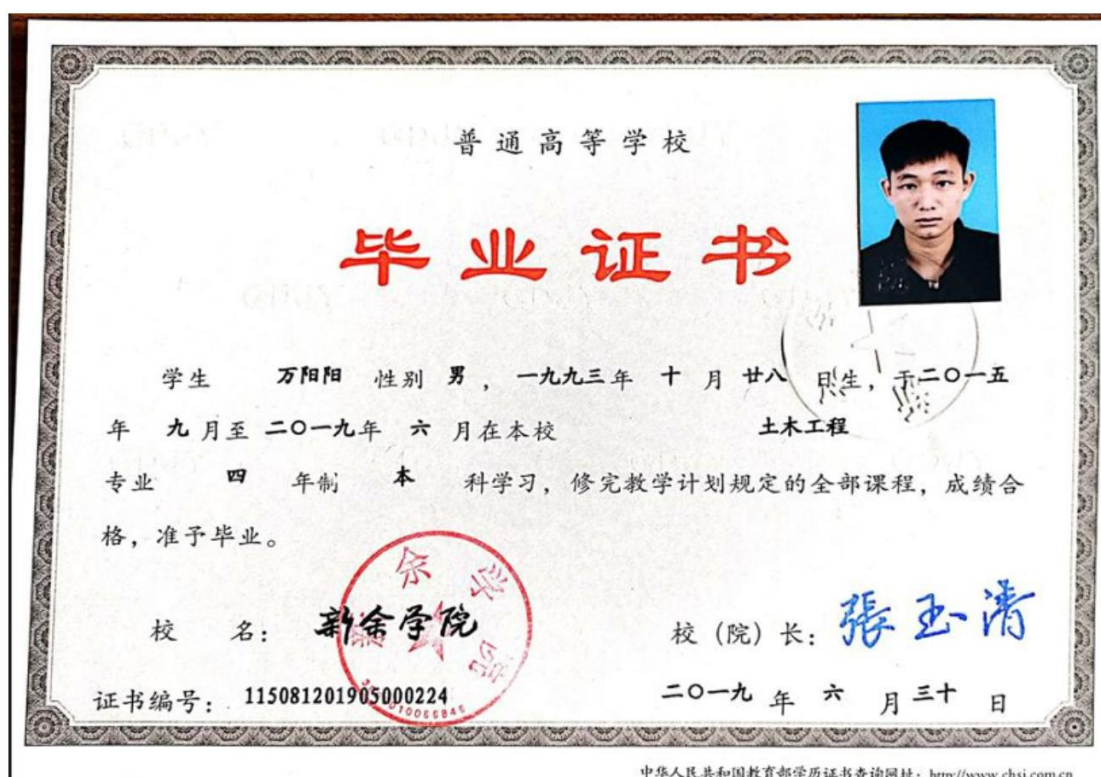 普通高等学校
毕业证书
学生 万阳阳 性别 男，一九九三年 十 月 廿八 日生，于二〇一五
年 九 月至 二〇一九年 六 月在本校 土木工程
专业 四 年制 本 科学习，修完教学计划规定的全部课程，成绩合
格，准予毕业。
校 名： 新余学院
校（院）长： 張玉清
证书编号： 115081201905000224
二〇一九 年 六 月 三十 日
中华人民共和国教育部学历证书查询网址：http://www.chsi.com.cn